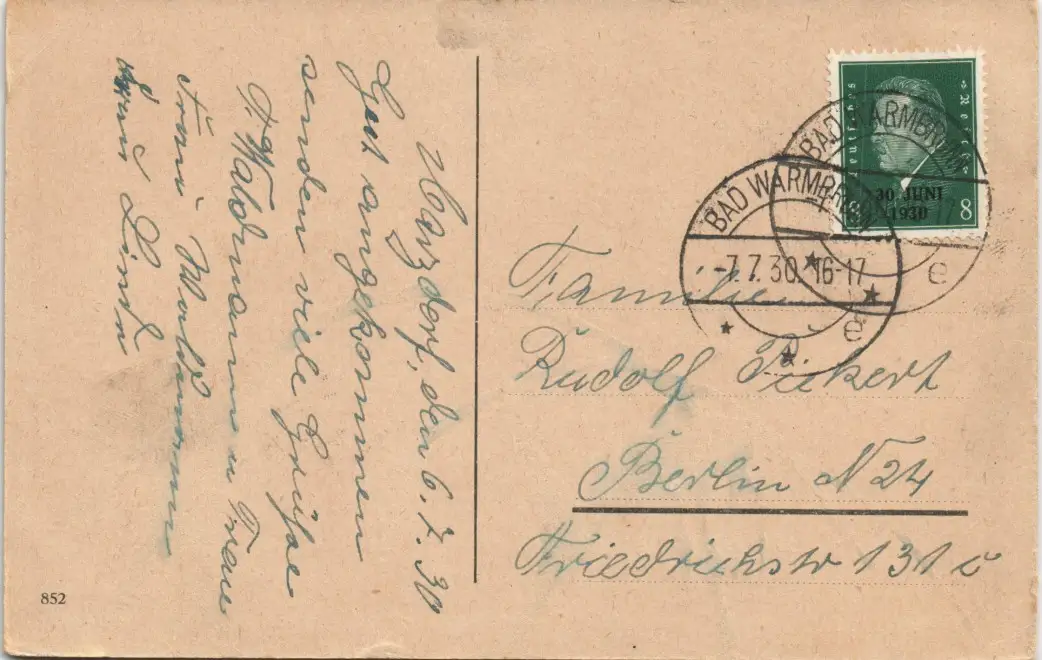 Harzdorf, den 6.7.30
Gut angekommen
senden viele Grüße
Waldmann u Frau
Frau
und
Deutsches Reich
30. JUNI
1930
8
BAD WARMBRUNN
BAD WARMBRUNN
-7.7.30. 16-17
e
e
Familie
Rudolf Pickert
Berlin N 24
Friedrichstr 131 c
852